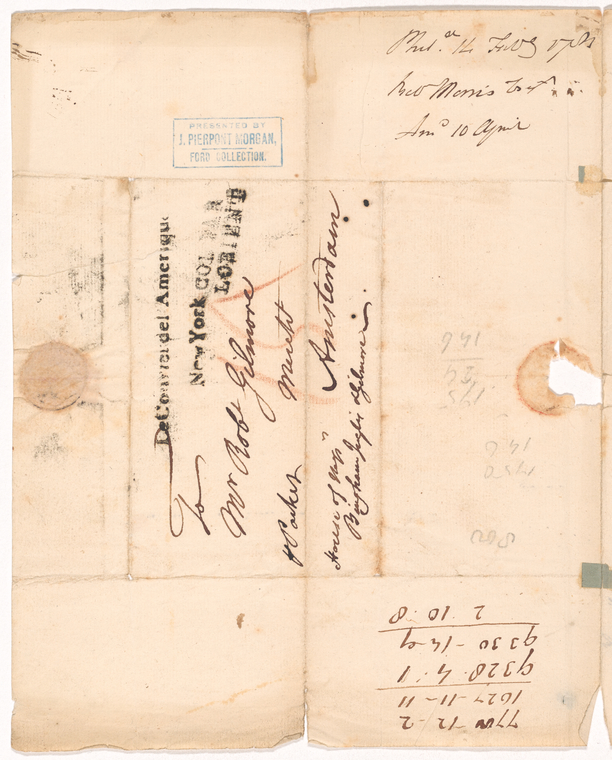 Phil.ª 14 Feb.y 1784
Rob Morris Esq.r
Am.d 10 April
PRESENTED BY
J. PIERPONT MORGAN,
FORD COLLECTION.
Du Courier del Amerique
New York COL PAR
LORIENT
To
Mr Rob.t Gilmore
Mercht
Amsterdam
Packet
House of
Bingham Inglis & Gilmore
146
24
175
146
1750
802
772 - 12 - 2
1627 - 11 - 11
9328 . 4 . 1
9330 - 14 . 9
2 . 10 . 8